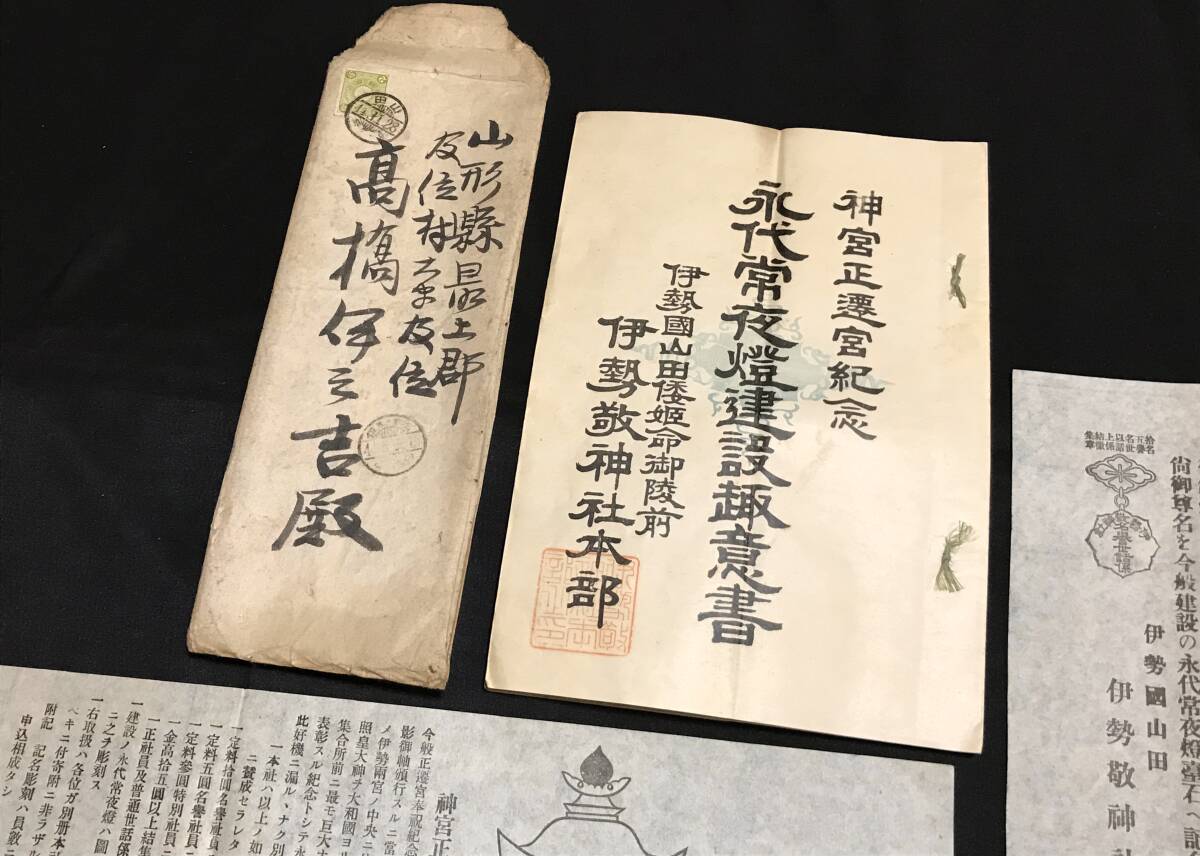 山形縣最上郡
及位村大字及位
高橋伊之吉殿
山田
神宮正遷宮紀念
永代常夜燈建設趣意書
伊勢國山田倭姫命御陵前
伊勢敬神社本部
拾五名以上結集
名譽世話係徽章
尚御尊名を今般建設の永代常夜燈臺石へ
伊勢國山田
伊勢敬神社
神宮正
今般正遷宮奉祝紀念
影御軸頒行スルニ當
ノ伊勢兩宮ノ中央ニ
照皇大神チ大和國ヨ
集合所前ニ最モ巨大
表彰スル紀念トシテ永
此好機ニ漏ルヽナク別
一本社ハ以上ノ如
ニ賛成セラレタ
一定料拾圓名譽社員
一定料五圓名譽社員ニ
一定料參圓特別社員ニ
一金高拾五圓以上結集
一正社員及普通世話係
一建設ノ永代常夜燈ハ圖
ニ之ヲ彫刻ス
一右取扱ハ各位ガ別册本
ヘキニ付寄附ニ非ラザル
附記 記名彫刻ハ員數ニ
申込相成タシ